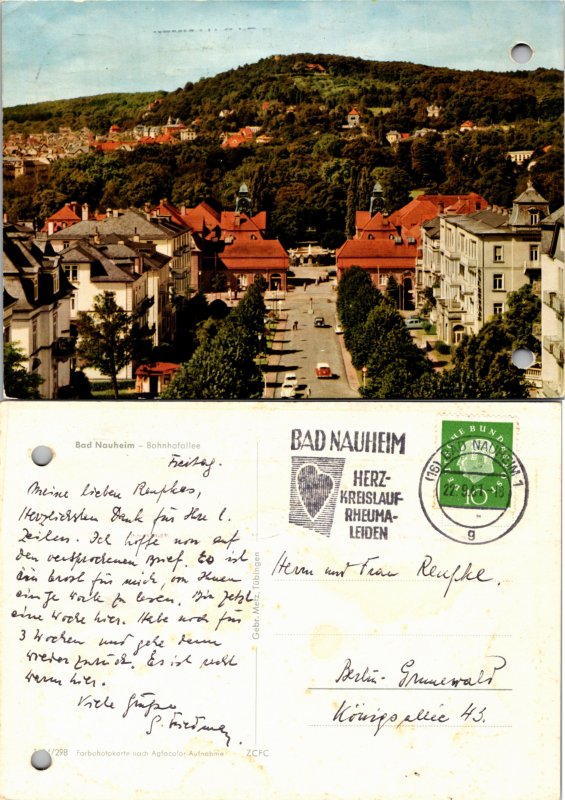 Bad Nauheim – Bahnhofallee
Freitag.
Meine lieben Renfkes,
Herzlichsten Dank für Ihre l.
Zeilen. Ich hoffe nun auf
den versprochenen Brief. Es ist
ein Trost für mich, von Ihnen
einige Worte zu lesen. Bin jetzt
eine Woche hier. Habe noch für
3 Wochen und gehe dann
wieder zurück. Es ist recht
warm hier.
Viele Grüße
/29B Farbphotokarte nach Agfacolor-Aufnahme ZCFC
Gebr. Metz, Tübingen
BAD NAUHEIM
HERZ-
KREISLAUF-
RHEUMA-
LEIDEN
(16) BAD NAUHEIM 1
g
10
Herrn und Frau Renfke.
Berlin-Grunewald
Königsallee 43.